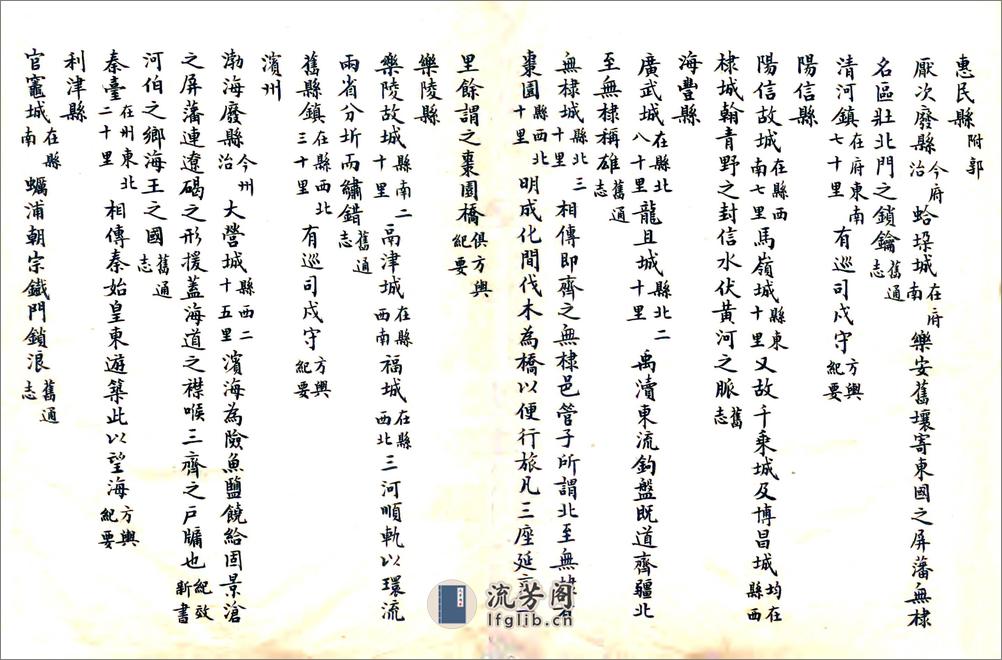 惠民縣附郭
厭次廢縣今府治蛤垜城在府南樂安舊壤寄東國之屏藩無棣
名區壯北門之鎖鑰舊通志
清河鎮在府東南七十里有巡司戍守方輿紀要
陽信縣
陽信故城在縣西南七里馬嶺城縣東十里又故千乘城及博昌城均在縣西
棣城翰青野之封信水伏黃河之脈舊志
海豐縣
廣武城在縣北八十里龍且城縣北二十里禹瀆東流鉤盤既道齊疆北
至無棣稱雄舊通志
無棣城縣北三十里相傳即齊之無棣邑管子所謂北至無棣
棗園縣西北十里明成化間伐木為橋以便行旅凡三座延
里餘謂之棗園橋俱方輿紀要
樂陵縣
樂陵故城縣南二十里鬲津城在縣西南福城在縣西北三河順軌以環流
兩省分圻而繡錯舊通志
舊縣鎮在縣西北三十里有巡司戍守方輿紀要
濱州
渤海廢縣今州治大營城縣西二十五里濱海為險魚鹽饒給固景滄
之屏藩連遼碣之形援蓋海道之襟喉三齊之戶牖也紀效新書
河伯之鄉海王之國舊通志
秦臺在州東北二十里相傳秦始皇東遊築此以望海方輿紀要
利津縣
官竈城在縣南蠣浦朝宗鐵門鎖浪舊通志
流芳阁
lfglib.cn